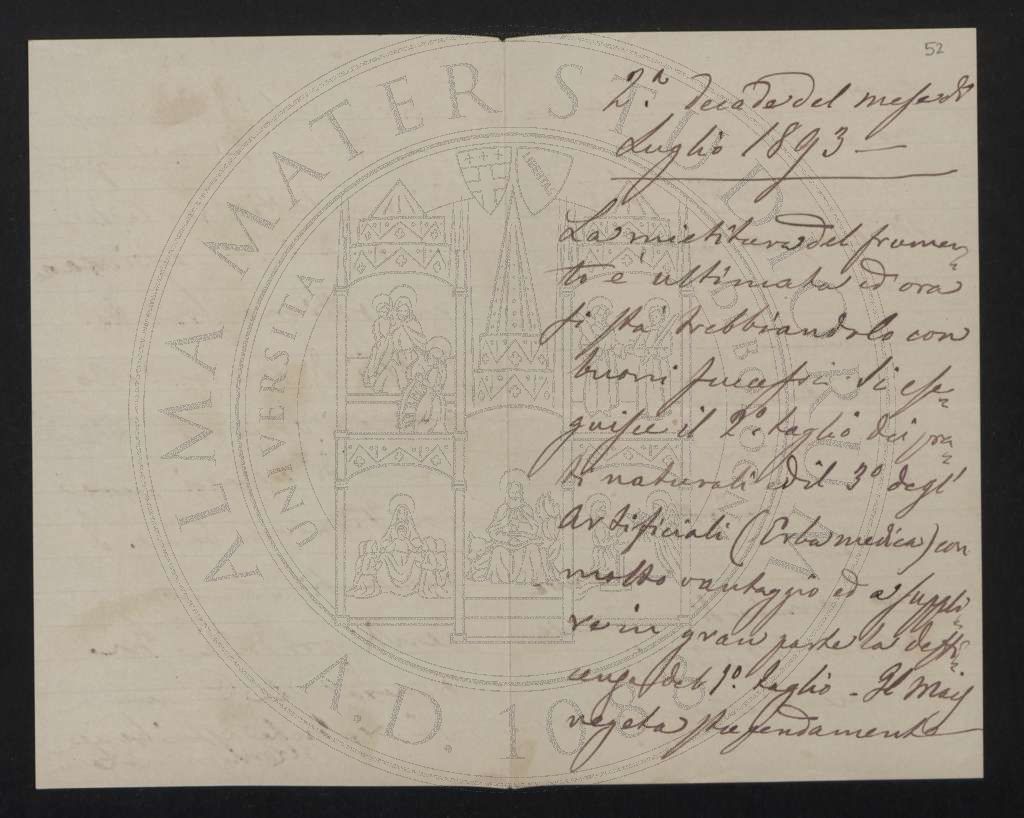 52
2.ª decade del mese di
Luglio 1893 —
La mietitura del frumen=
to è ultimata ed ora
si stà trebbiandolo con
buoni successi. Si ese=
guisce il 2º taglio dei pra=
ti naturali ed il 3º degl'
Artificiali (Erba medica) con
molto vantaggio ed a suppli=
re in gran parte la deffi=
cenza del 1º taglio - Il Mais
vegeta stupendamente
ALMA MATER STUDIORUM
A.D. 1088
UNIVERSITA DI BOLOGNA
LIBERTAS